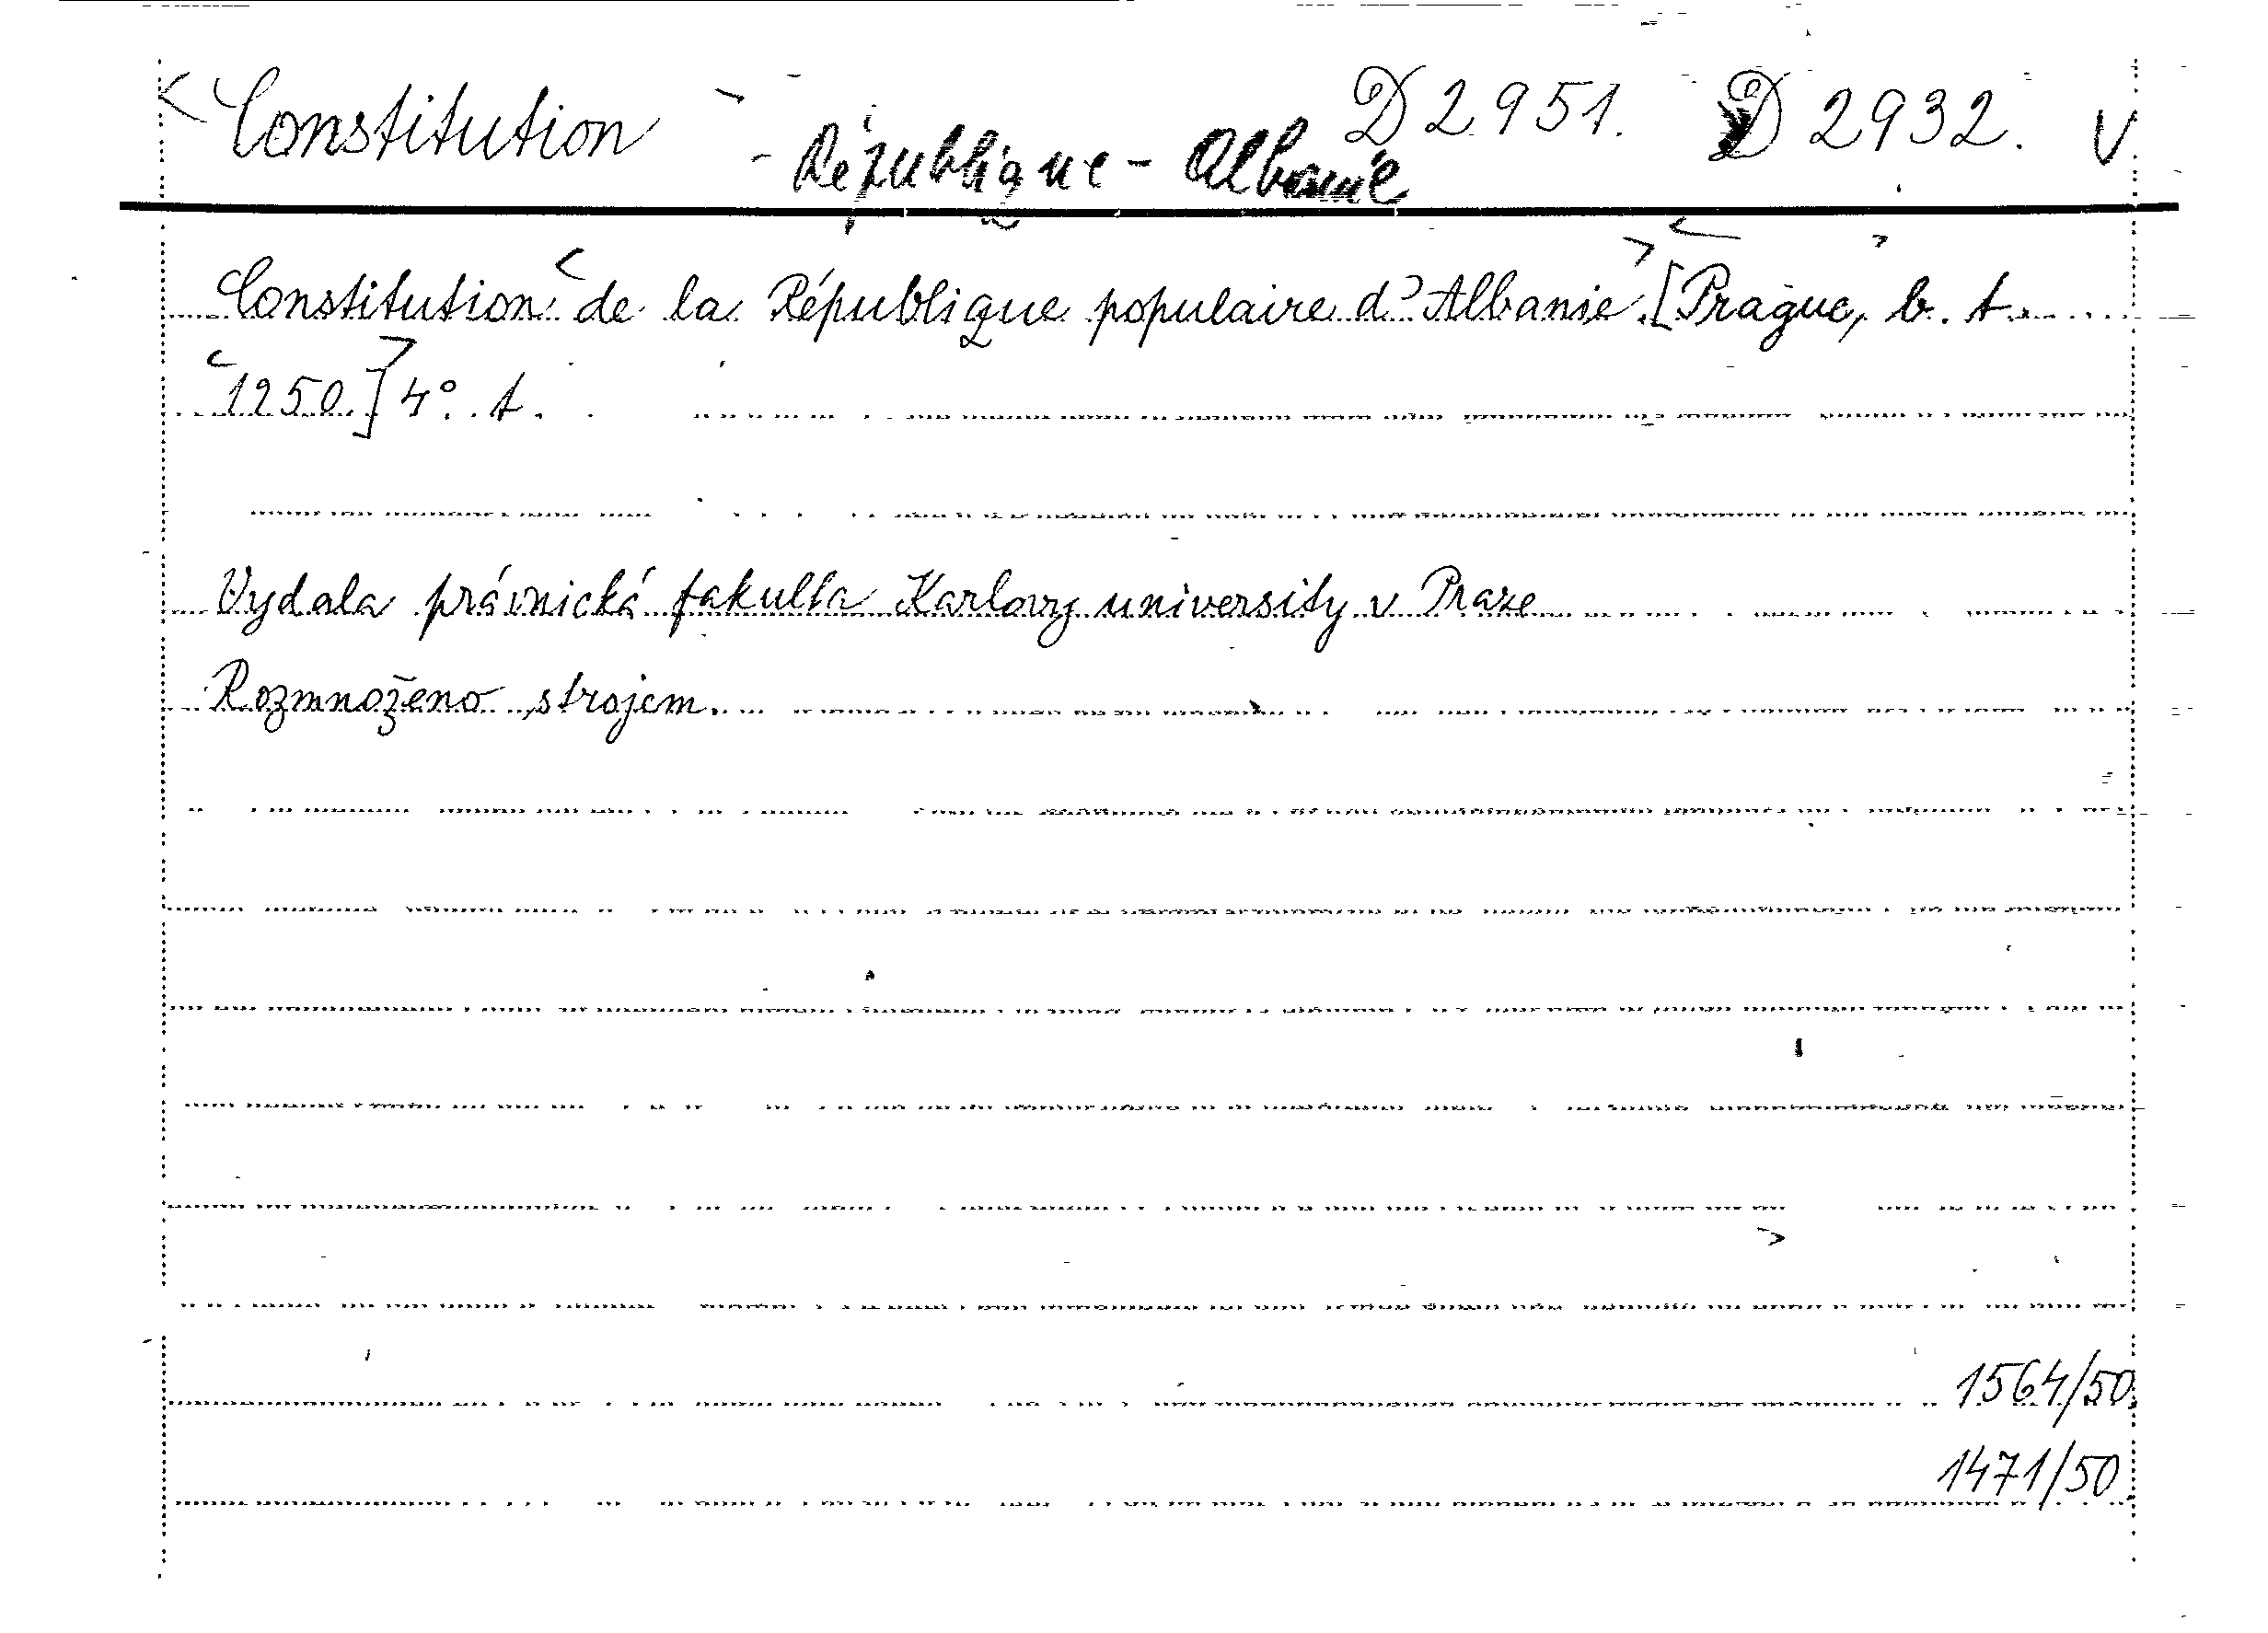 < Constitution > - République - Albanie D 2951. D 2932. V
Constitution < de la République populaire d'Albanie > . < [Prague, b. t.
< 1950.] > 4°. t.
Vydala právnická fakulta Karlovy university v Praze
Rozmnoženo strojem.
1564/50.
1471/50.